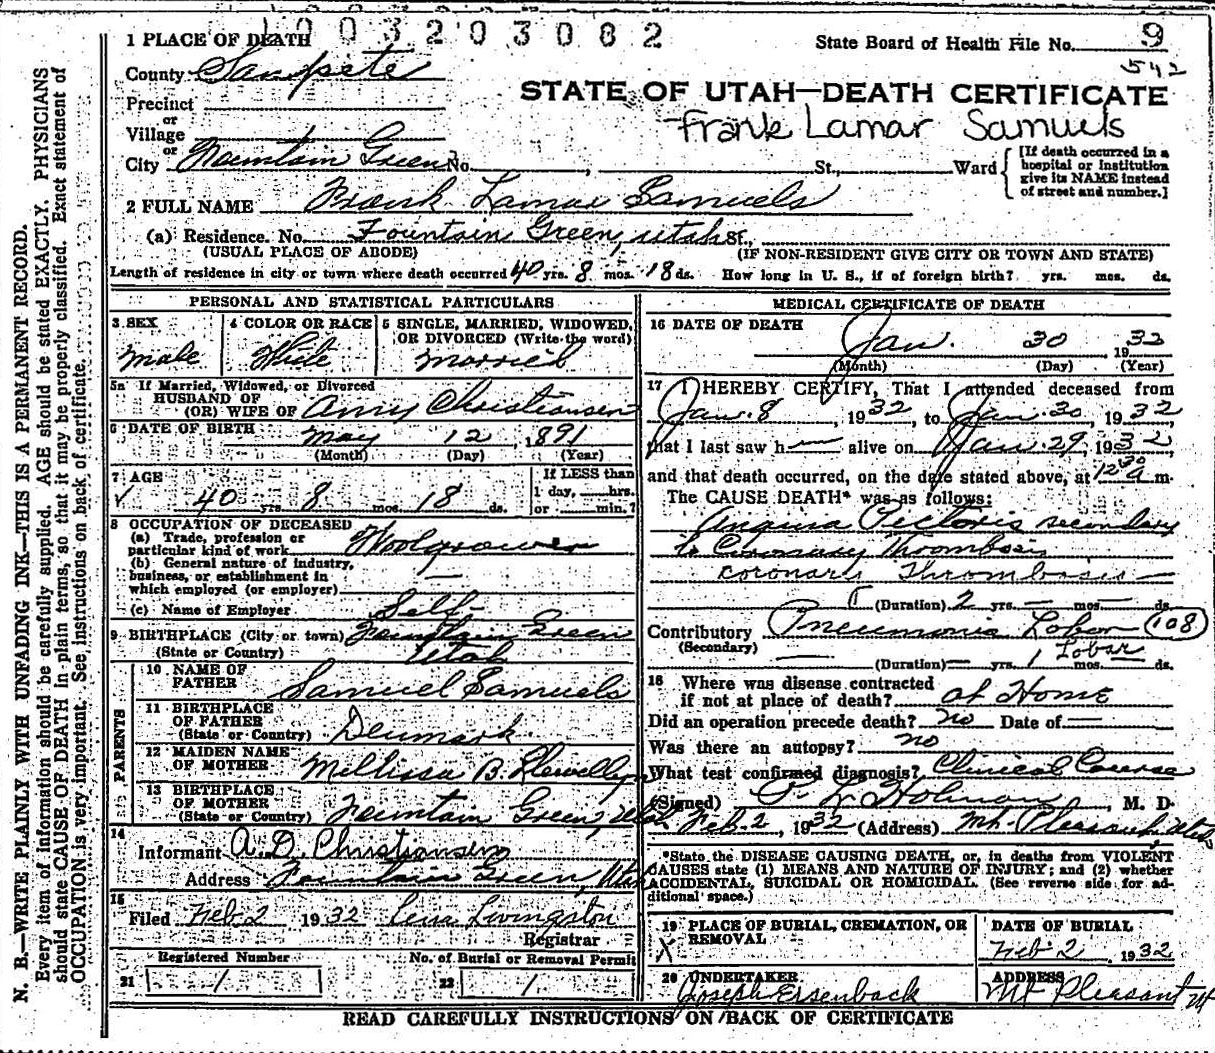 1003203082
1 PLACE OF DEATH
State Board of Health File No. 9
542
County Sanpete
STATE OF UTAH—DEATH CERTIFICATE
Precinct
or
Frank Lamar Samuels
Village
or
City Fountain Green No. , St., Ward
[If death occurred in a
hospital or institution
give its NAME instead
of street and number.]
2 FULL NAME Frank Lamar Samuels
(a) Residence. No. Fountain Green, Utah St.,
(USUAL PLACE OF ABODE) (IF NON-RESIDENT GIVE CITY OR TOWN AND STATE)
Length of residence in city or town where death occurred 40 yrs. 8 mos. 18 ds. How long in U. S., if of foreign birth? yrs. mos. ds.
PERSONAL AND STATISTICAL PARTICULARS
3 SEX
Male
4 COLOR OR RACE
White
5 SINGLE, MARRIED, WIDOWED,
OR DIVORCED (Write the word)
Married
5a If Married, Widowed, or Divorced
HUSBAND OF
(OR) WIFE OF Amy Christiansen
6 DATE OF BIRTH May 12, 1891
(Month) (Day) (Year)
7 AGE
✓ 40 yrs. 8 mos. 18 ds.
If LESS than
1 day, hrs.
or min.?
8 OCCUPATION OF DECEASED
(a) Trade, profession or
particular kind of work Woolgrower
(b) General nature of industry,
business, or establishment in
which employed (or employer) —
(c) Name of Employer Self
9 BIRTHPLACE (City or town) Fountain Green
(State or Country) Utah
PARENTS
10 NAME OF
FATHER Samuel Samuels
11 BIRTHPLACE
OF FATHER
(State or Country) Denmark
12 MAIDEN NAME
OF MOTHER Mellissa B. Llewellyn
13 BIRTHPLACE
OF MOTHER
(State or Country) Fountain Green, Utah
14
Informant A. D. Christiansen
Address Fountain Green, Utah
15
Filed Feb 2 1932 Livingston
Registrar
Registered Number
21 1
No. of Burial or Removal Permit
22 1
MEDICAL CERTIFICATE OF DEATH
16 DATE OF DEATH
Jan. 30 1932
(Month) (Day) (Year)
17 I HEREBY CERTIFY, That I attended deceased from
Jan. 8, 1932, to Jan. 30, 1932
that I last saw h— alive on Jan. 29, 1932
and that death occurred, on the date stated above, at 12 30 a m.
The CAUSE DEATH* was as follows:
Anguia Pectoris secondary
to Coronary Thrombosis
coronary Thrombosis —
(Duration) 2 yrs. — mos. — ds.
Contributory Pneumonia Lobar 108
(Secondary) Lobar
(Duration) — yrs. 1 mos. — ds.
18 Where was disease contracted
if not at place of death? at Home
Did an operation precede death? no Date of —
Was there an autopsy? no
What test confirmed diagnosis? Clinical Course
(Signed) P. L. Holman, M. D.
Feb. 2, 1932 (Address) Mt. Pleasant, Utah
*State the DISEASE CAUSING DEATH, or, in deaths from VIOLENT
CAUSES state (1) MEANS AND NATURE OF INJURY; and (2) whether
ACCIDENTAL, SUICIDAL OR HOMICIDAL. (See reverse side for ad-
ditional space.)
19 PLACE OF BURIAL, CREMATION, OR
REMOVAL
X
DATE OF BURIAL
Feb 2 1932
20 UNDERTAKER
Joseph Ersenback
ADDRESS
Mt Pleasant Ut
READ CAREFULLY INSTRUCTIONS ON BACK OF CERTIFICATE
N. B.—WRITE PLAINLY WITH UNFADING INK—THIS IS A PERMANENT RECORD.
Every item of information should be carefully supplied. AGE should be stated EXACTLY. PHYSICIANS
should state CAUSE OF DEATH in plain terms, so that it may be properly classified. Exact statement of
OCCUPATION is very important. See instructions on back of certificate.